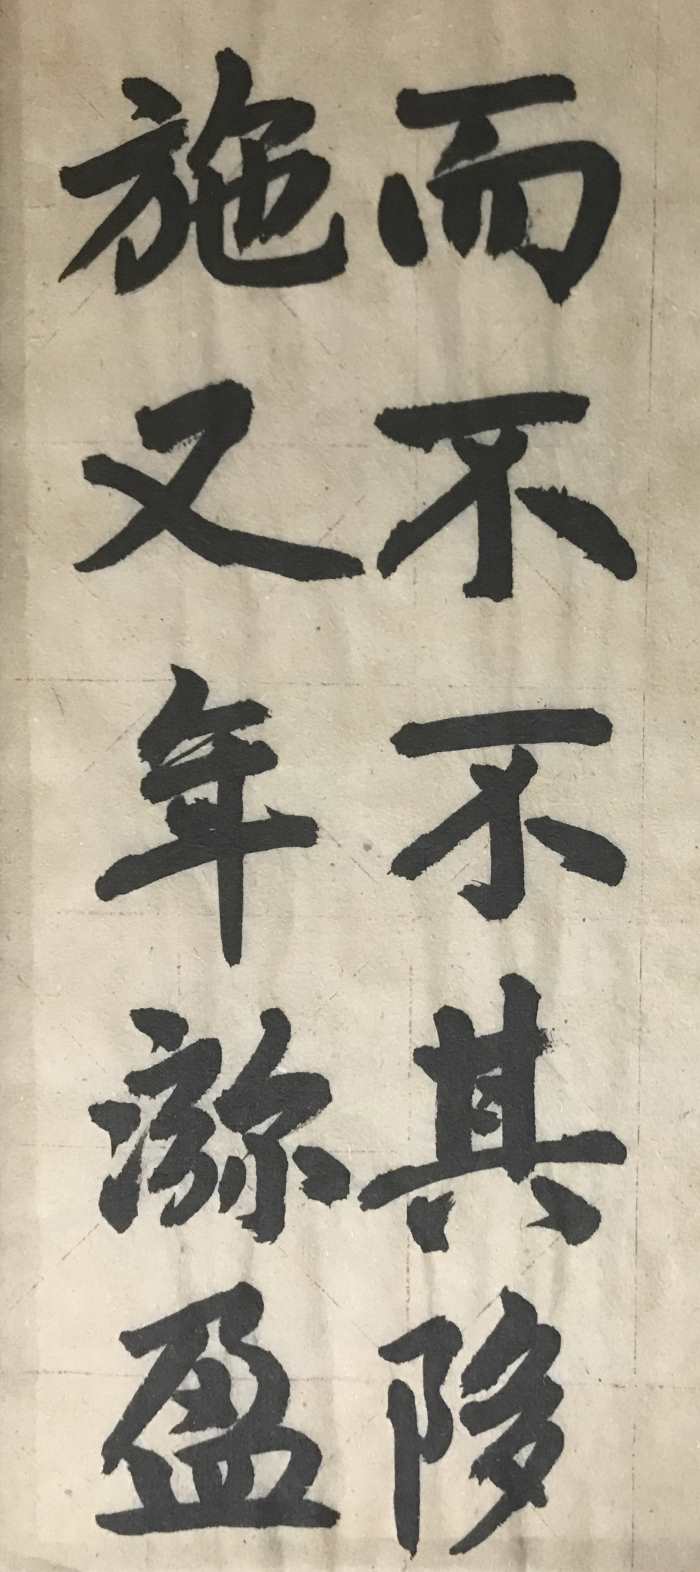 而不不其陊
施又年㳽盈